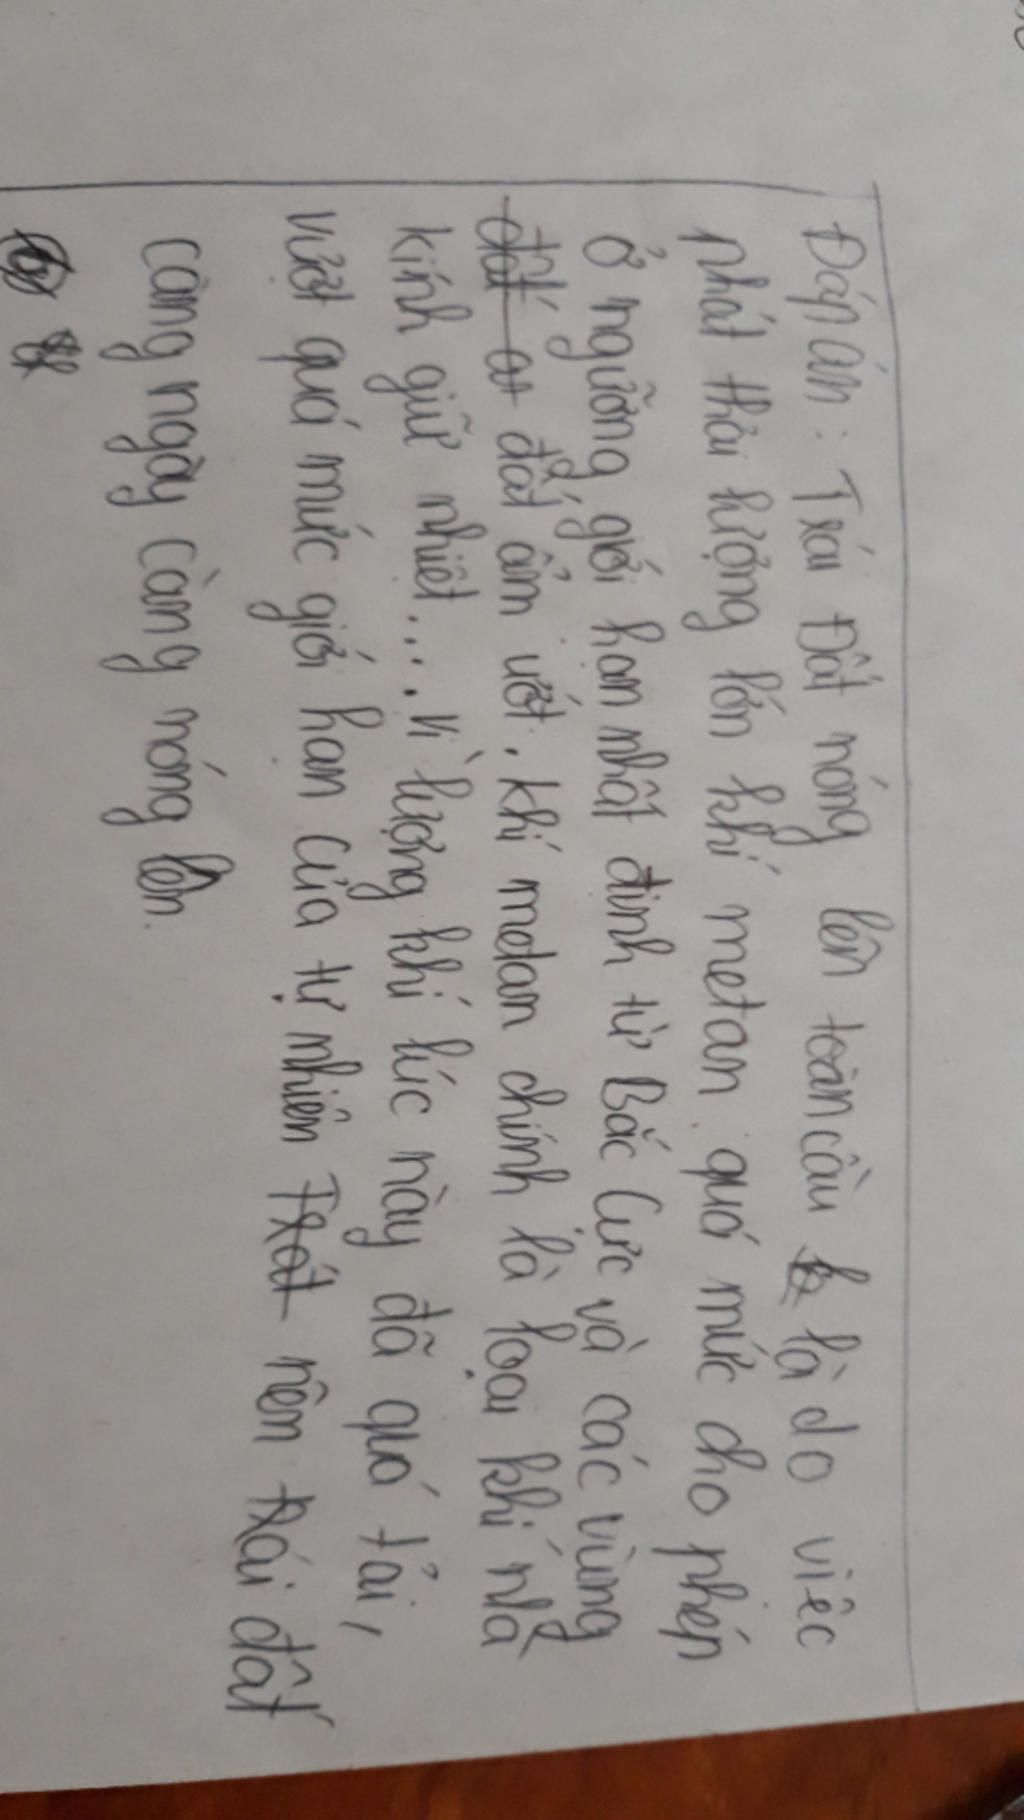 Đáp án: Trái Đất nóng lên toàn cầu là do việc
phát thải lượng lớn khí metan quá mức cho phép
ở ngưỡng giới hạn nhất định từ Bắc Cực và các vùng
đất ẩm ướt. Khí metan chính là loại khí nhà
kính giữ nhiệt.... Vì lượng khí lúc này đã quá tải,
vượt quá mức giới hạn của tự nhiên nên trái đất
càng ngày càng nóng lên.